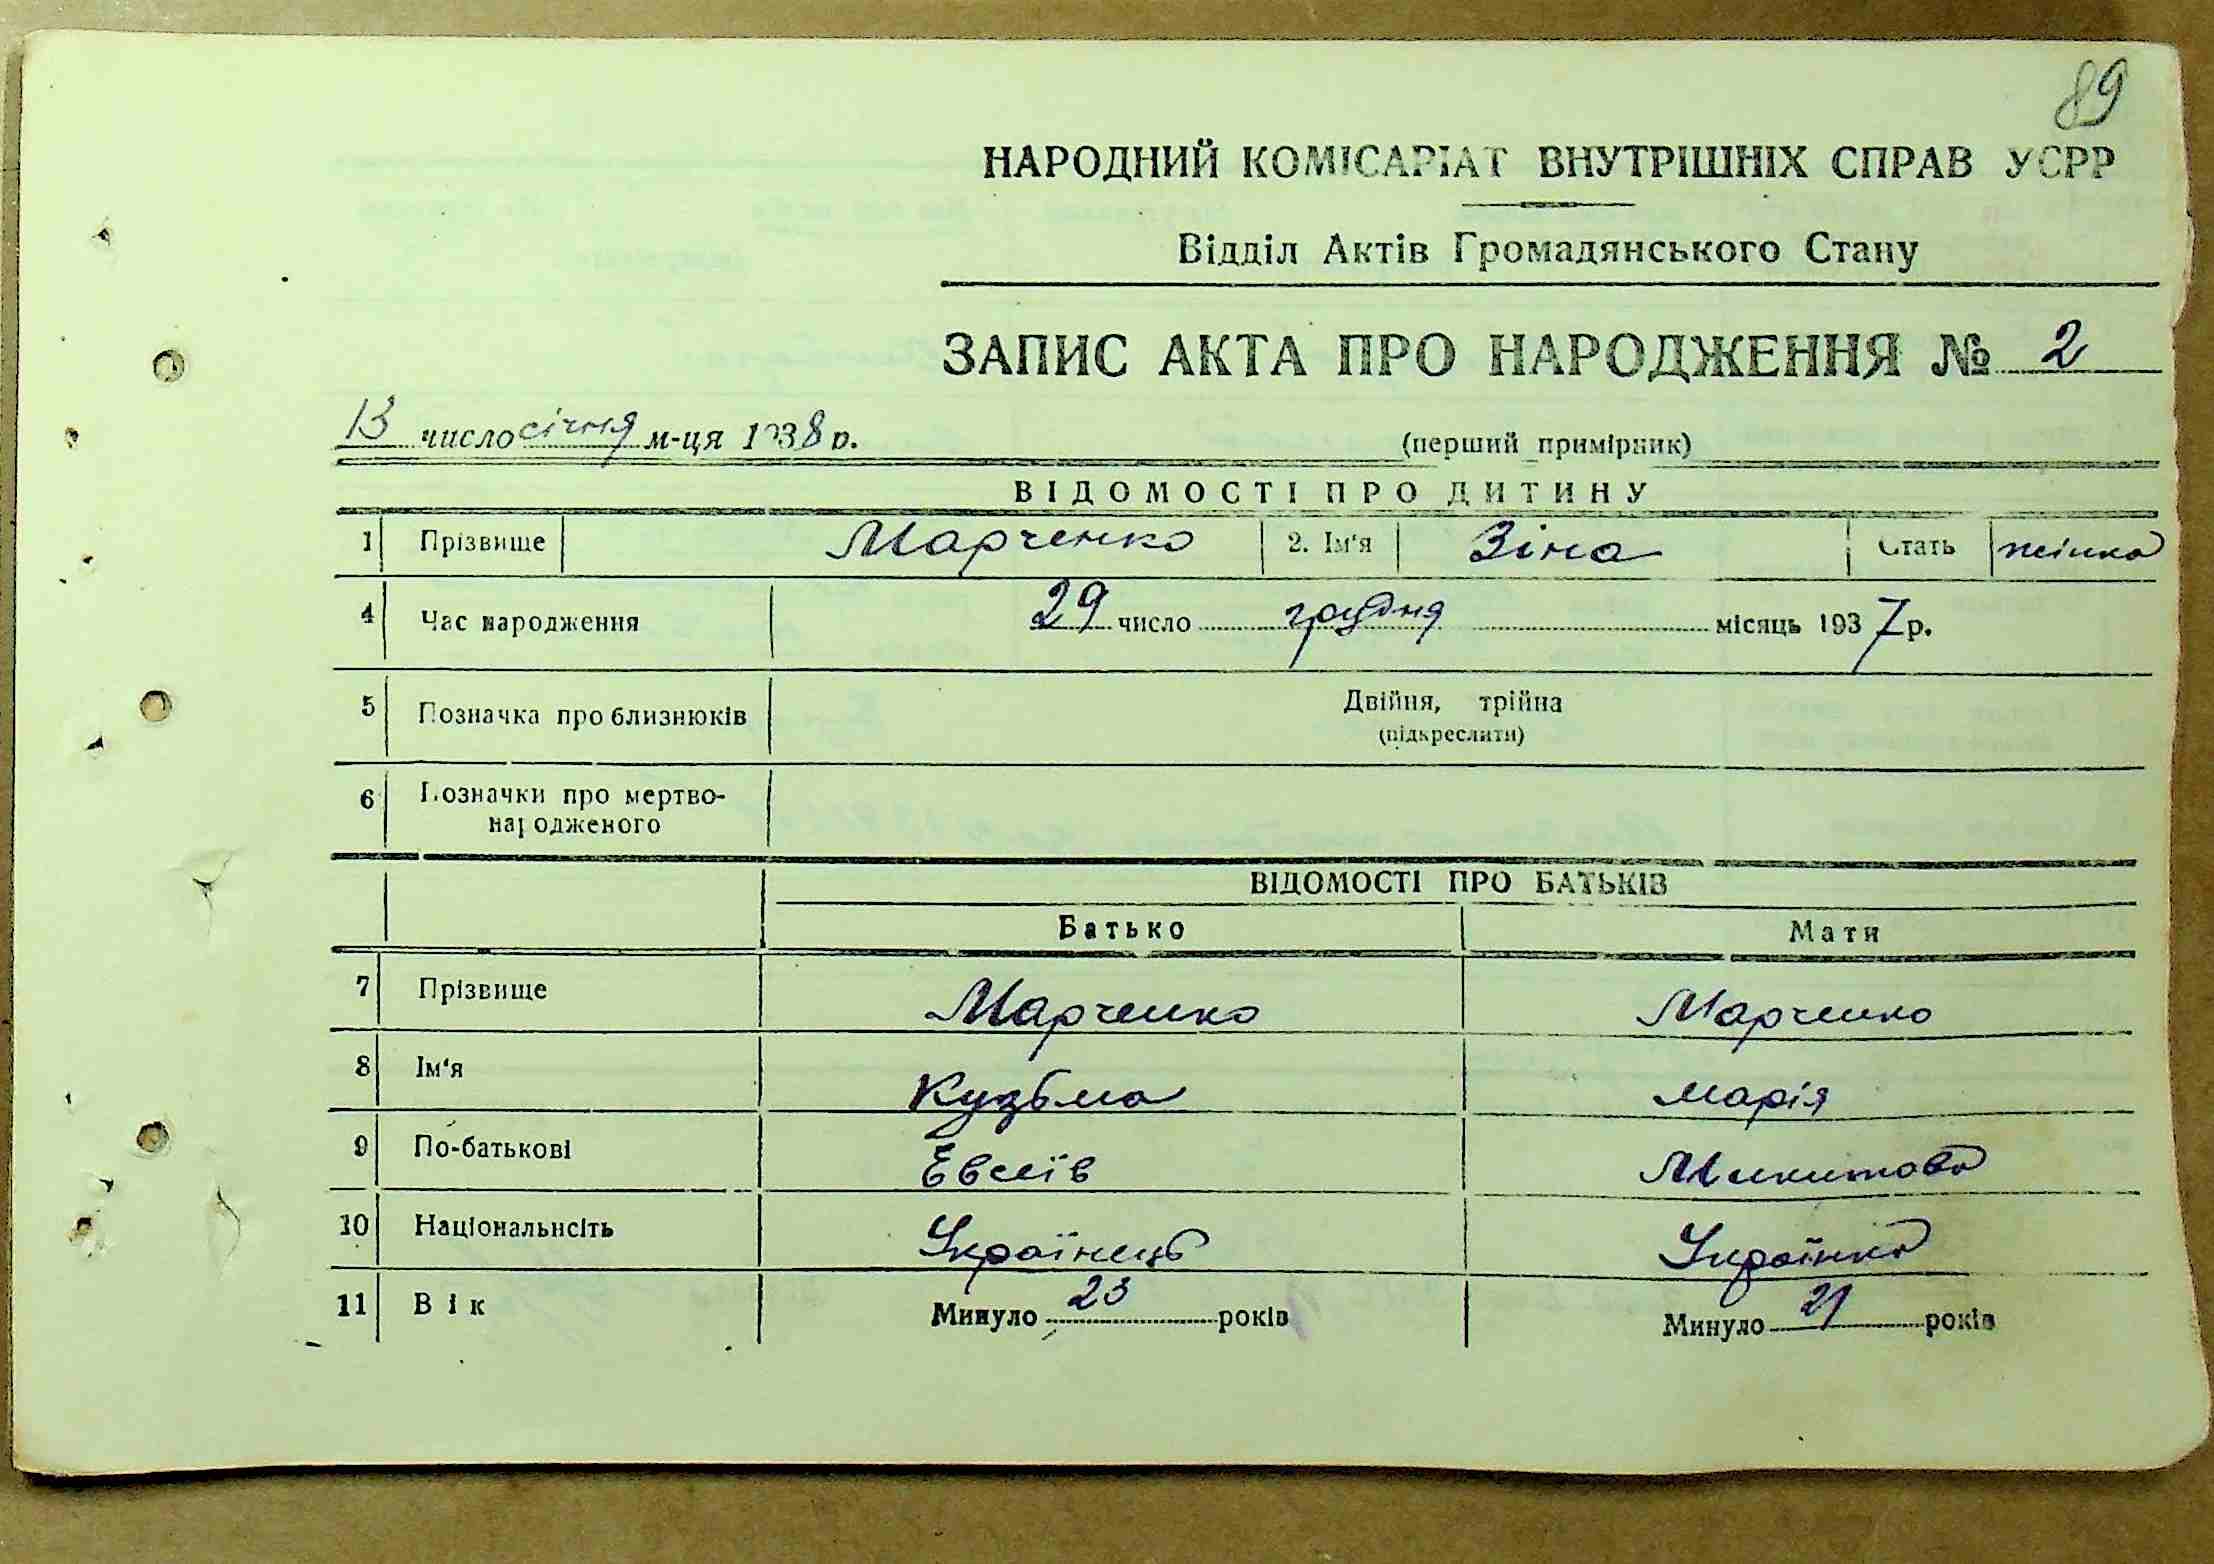 89
НАРОДНИЙ КОМІСАРІАТ ВНУТРІШНІХ СПРАВ УСРР
Відділ Актів Громадянського Стану
ЗАПИС АКТА ПРО НАРОДЖЕННЯ № 2
13 число січня м-ця 1938 р.
(перший примірник)
ВІДОМОСТІ ПРО ДИТИНУ
1 Прізвище Марченко 2. Ім'я Зіна Стать жінка
4 Час народження 29 число грудня місяць 1937 р.
5 Позначка про близнюків Двійня, трійна
(підкреслити)
6 Позначки про мертво-
народженого
ВІДОМОСТІ ПРО БАТЬКІВ
Батько Мати
7 Прізвище Марченко Марченко
8 Ім'я Кузьма Марія
9 По-батькові Евсеїв Микитова
10 Національнсіть Українець Українка
11 Вік Минуло 23 років Минуло 21 років